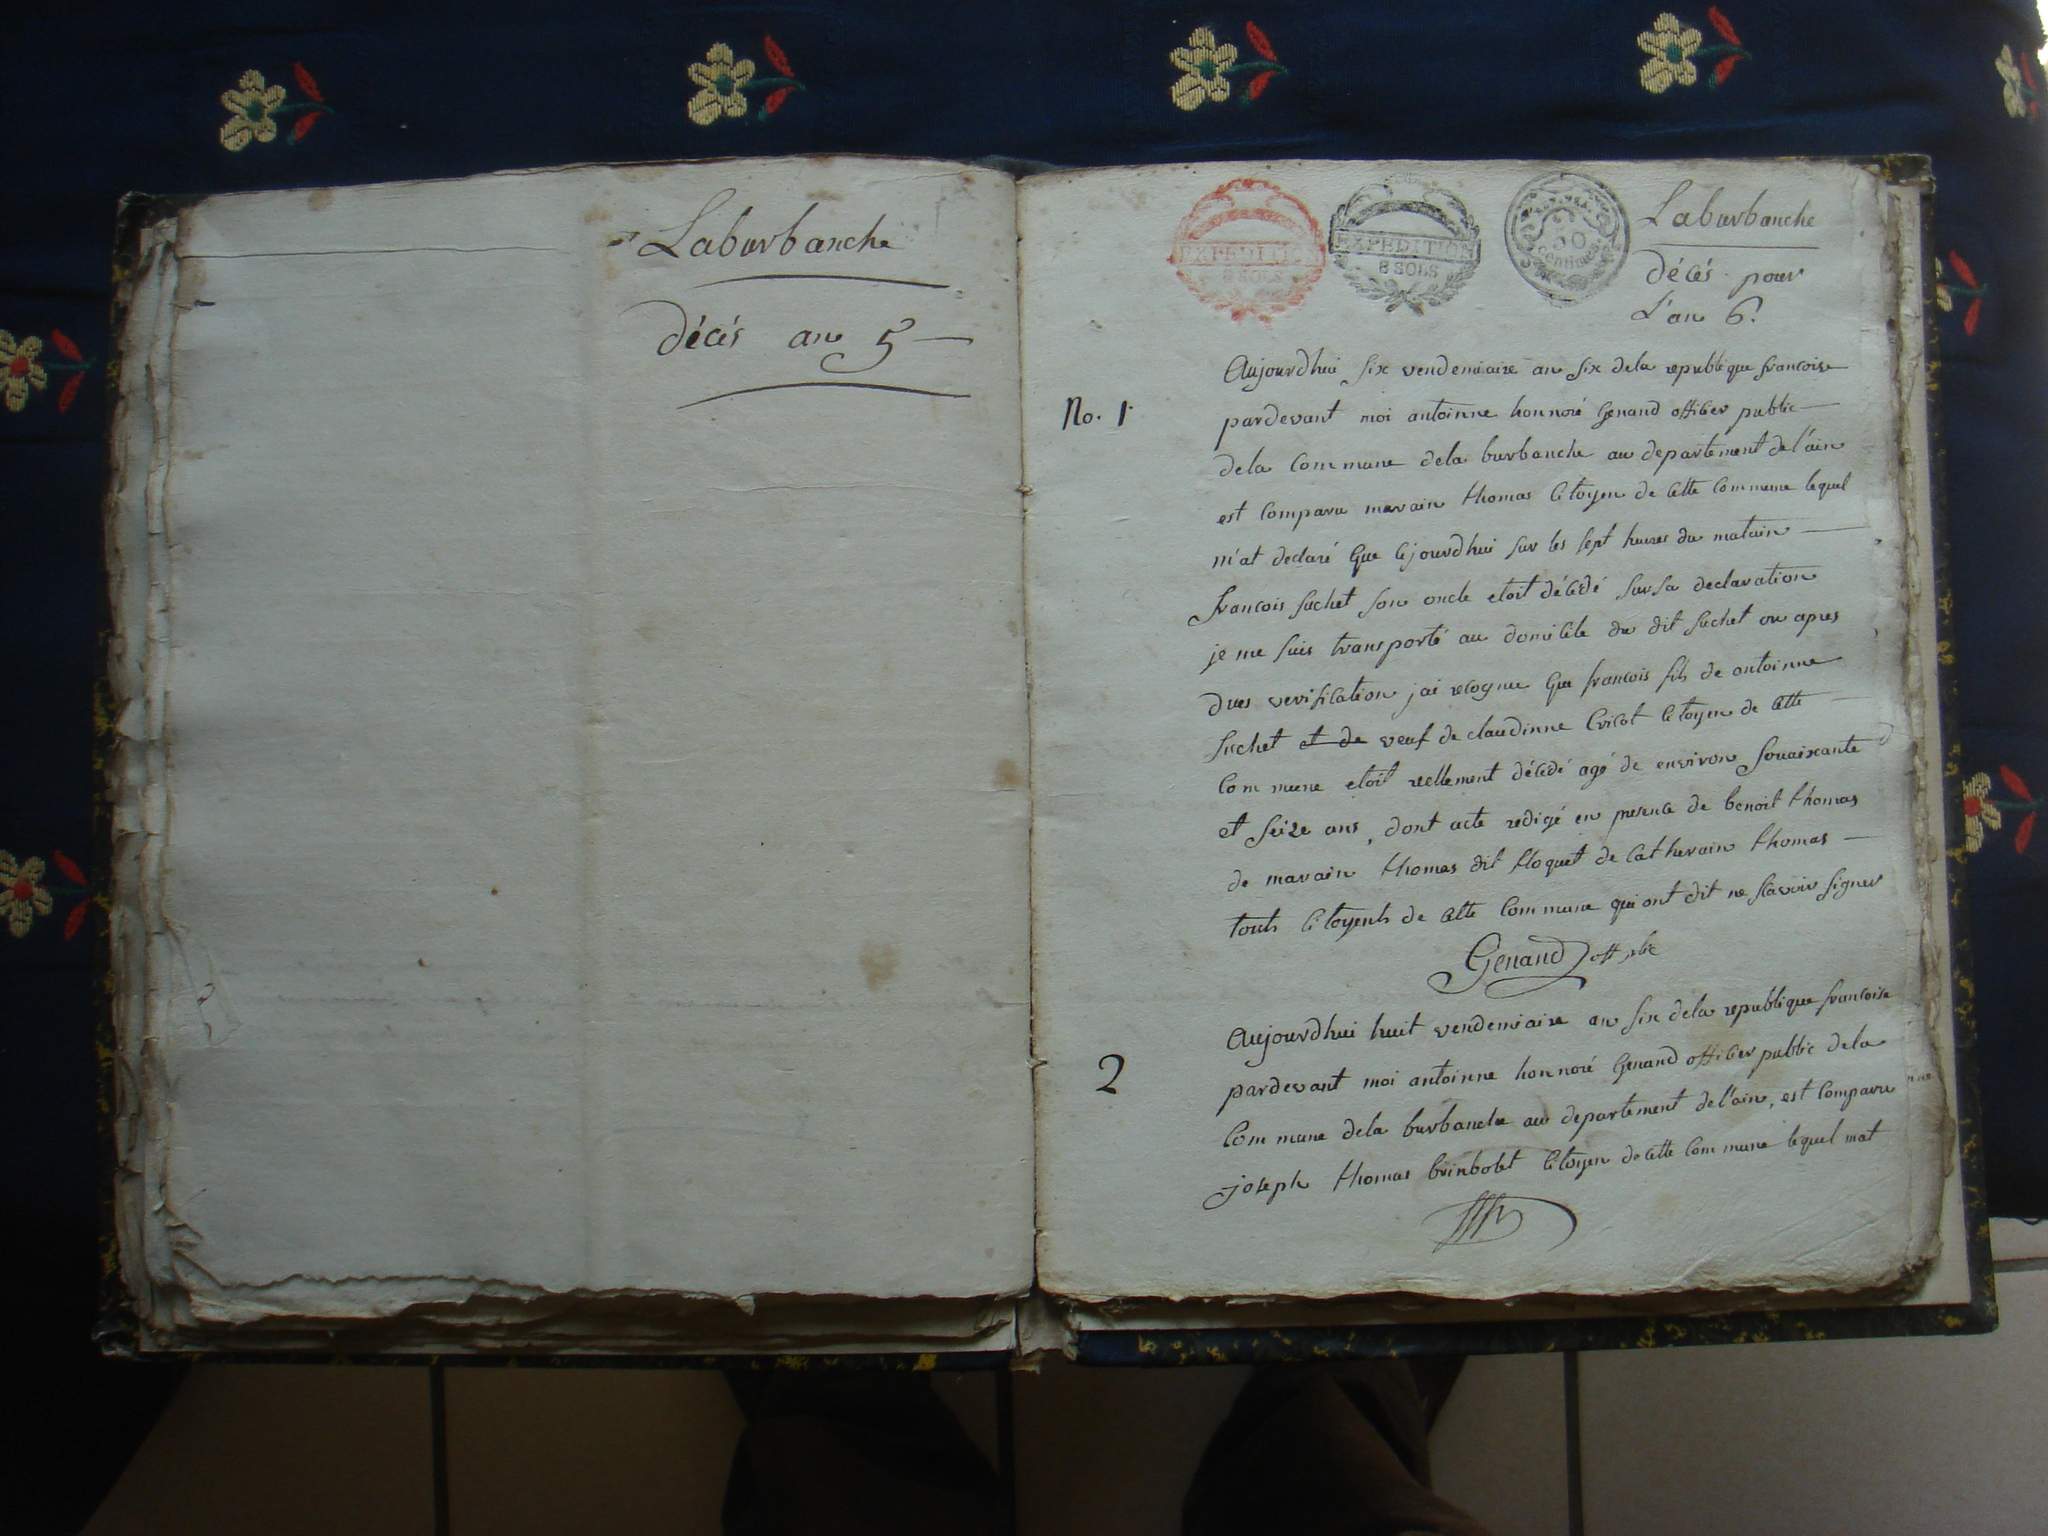 Laburbanche
décés an 5
EXPEDITION
8 SOLS
EXPEDITION
8 SOLS
50
centimes
Laburbanche
décés pour
L'an 6.
No. 1
Aujourdhui six vendemiaire an six dela republique francoise
pardevant moi antoinne honnoré Genand officier public
dela commune dela burbanche au departement de l'ain
est comparu marain thomas citoyen de cette commune lequel
m'at declaré que cejourdhui sur les sept heures du matain
francois suchet son oncle etoit décédé sur sa declaration
je me suis transporté au domicile du dit suchet ou apres
dues verification j'ai recognu que francois fils de antoinne
suchet et de veuf de claudinne cricot citoyen de cette
commune etoit réellement décédé agé de environ souaixante
et seize ans, dont acte redigé en presence de benoit thomas
de marain thomas dit floquet de catherain thomas
touts citoyents de cette commune qui ont dit ne scavoir signer
Genand off. plic
2
Aujourdhui huit vendemiaire an six dela republique francoise
pardevant moi antoinne honnoré Genand officier public dela
commune dela burbanche au departement de l'ain, est comparu
joseph thomas brinbolet citoyen de cette commune lequel mat